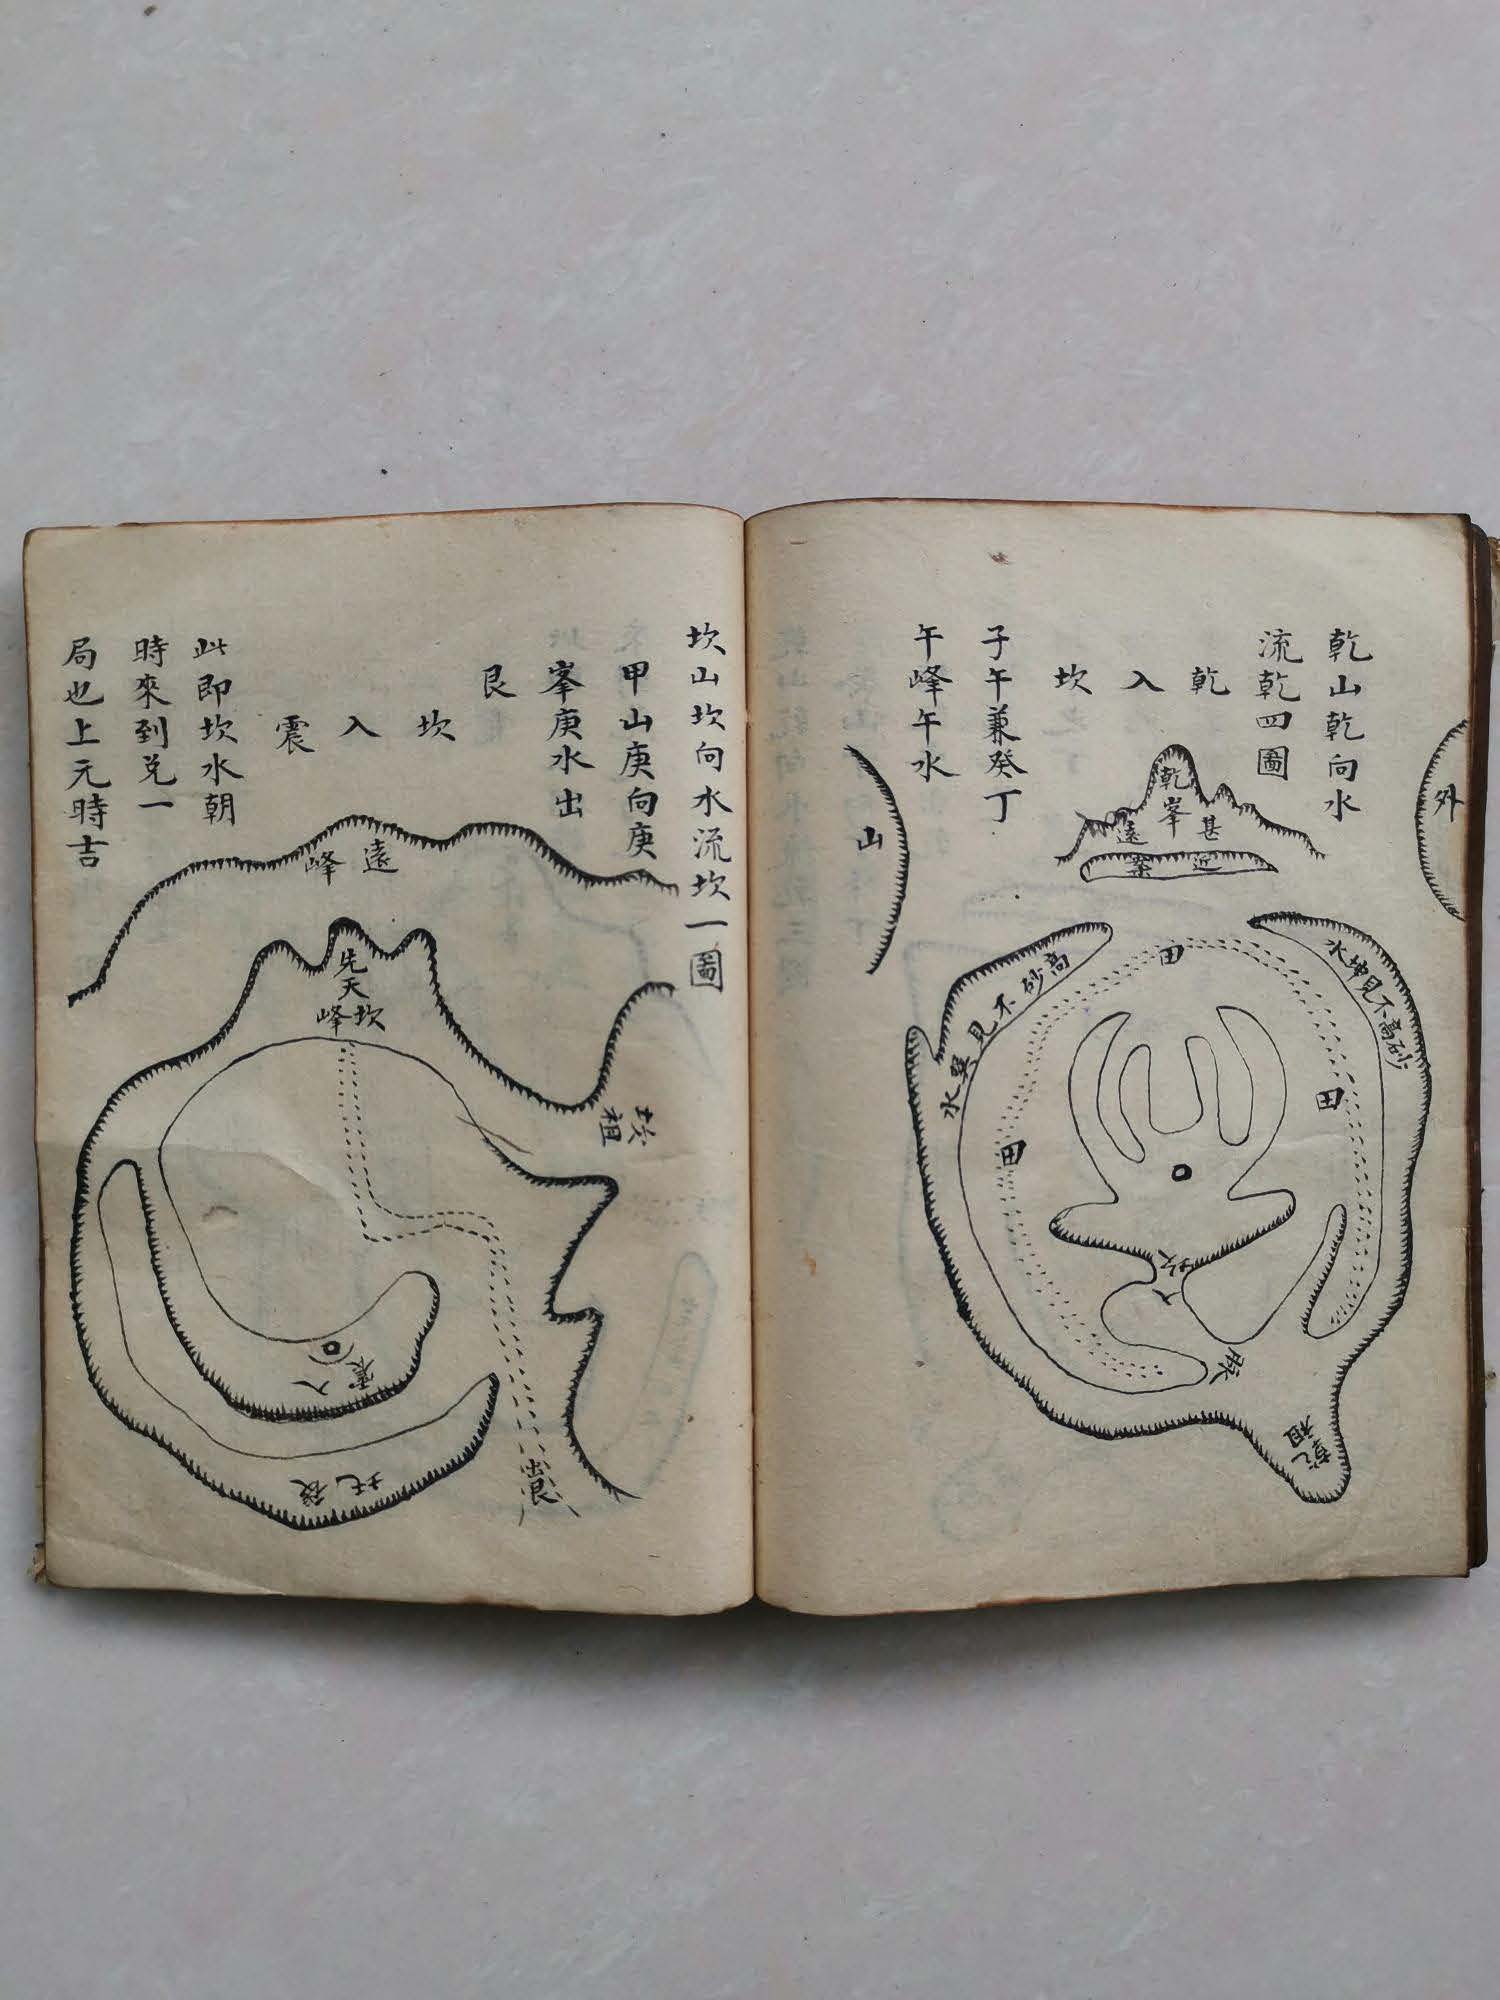 乾山乾向水
流乾四圖
乾
入
坎
子午兼癸丁
午峰午水
外
山
乾峯
甚
遠
近
案
高砂不見巽水
水坤見不高砂
田
田
田
入坎
脉
乾祖
坎山坎向水流坎一圖
甲山庚向庚
峯庚水出
艮
坎
入
震
此即坎水朝
時來到兌一
局也上元時吉
遠峰
先天
坎峰
坎祖
入震
後托
出艮